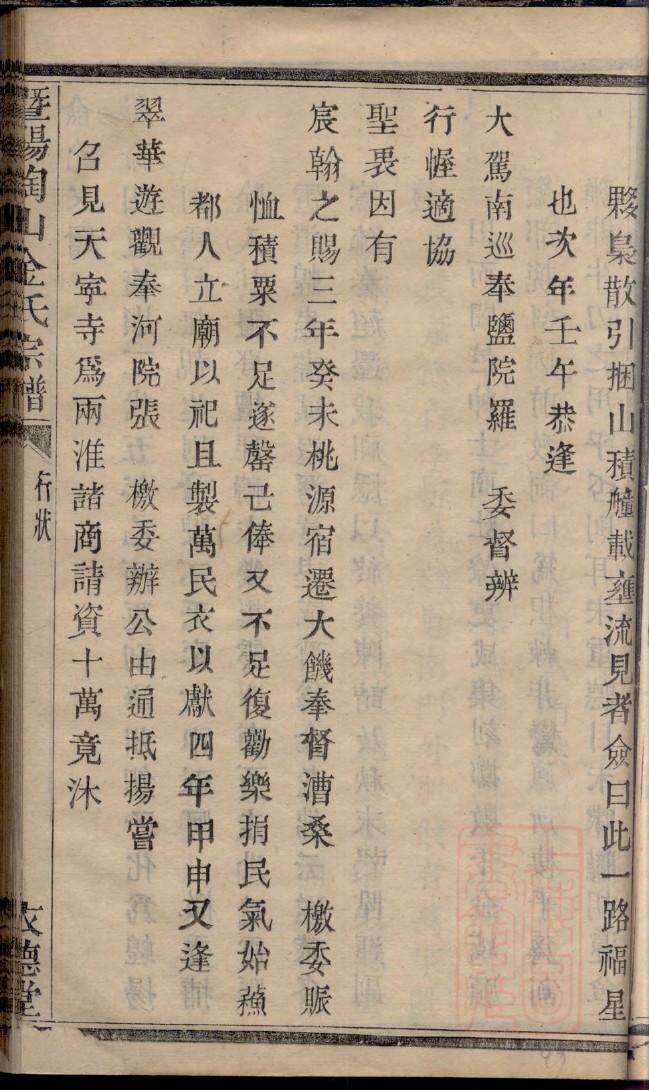 夥梟散引捆山積艟載壅流見者僉曰此一路福星
也次年壬午恭逢
大駕南巡奉鹽院羅 委督辨
行幄適協
聖畏因有
宸翰之賜三年癸未桃源宿遷大饑奉督漕桑 檄委賑
恤積粟不足遂罄己俸又不足復勸樂捐民氣始蘓
都人立廟以祀且製萬民衣以獻四年甲申又逢
翠華遊觀奉河院張 檄委辦公由通抵揚嘗
召見天寧寺爲兩淮諸商請資十萬竟沐
暨陽陶山金氏宗譜 行狀 文德堂